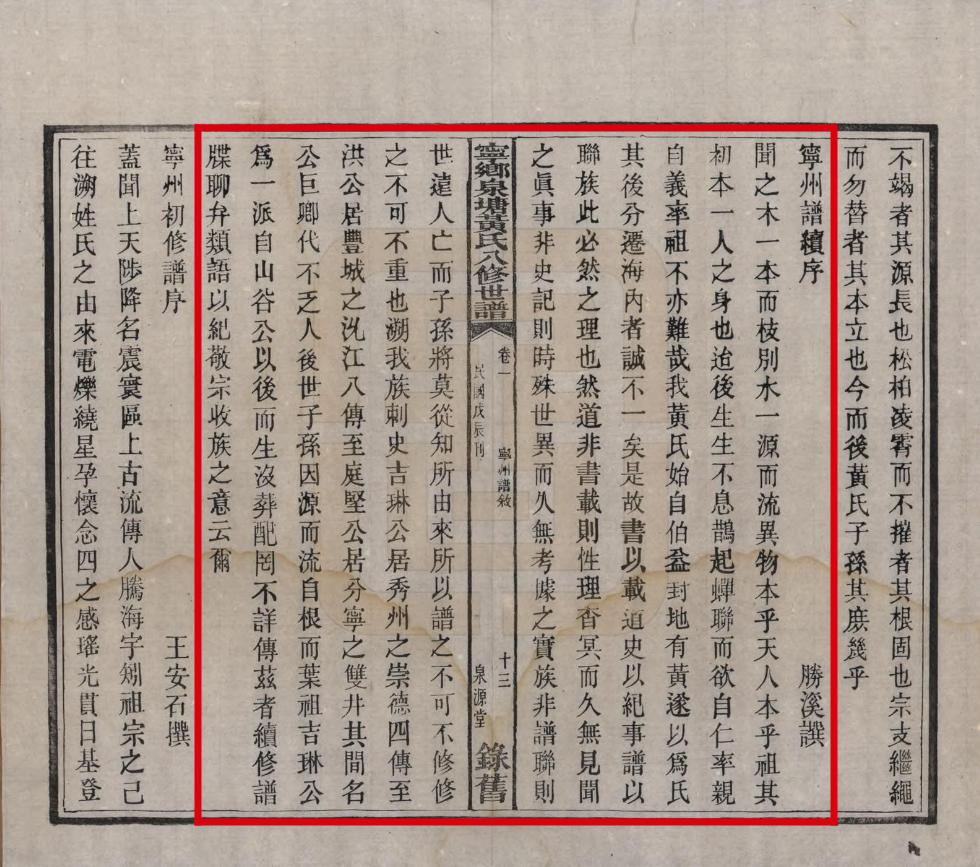 不竭者其源長也松柏凌霄而不摧者其根固也宗支繼繩
而勿替者其本立也今而後黃氏子孫其庶幾乎
寧州譜續序 勝溪譔
聞之木一本而枝別水一源而流異物本乎天人本乎祖其
初本一人之身也迨後生生不息鵲起蟬聯而欲自仁率親
自義率祖不亦難哉我黃氏始自伯益封地有黃遂以爲氏
其後分遷海內者誠不一矣是故書以載道史以紀事譜以
聯族此必然之理也然道非書載則性理杳冥而久無見聞
之眞事非史記則時殊世異而久無考據之實族非譜聯則
寧鄉泉塘黃氏八修世譜 卷一 寧州譜敘 十三 錄舊
民國戊辰刊 泉源堂
世遠人亡而子孫將莫從知所由來所以譜之不可不修修
之不可不重也溯我族刺史吉琳公居秀州之崇德四傳至
洪公居豐城之沇江八傳至庭堅公居分寧之雙井其間名
公巨卿代不乏人後世子孫因源而流自根而葉祖吉琳公
爲一派自山谷公以後而生沒葬配罔不詳傳茲者續修譜
牒聊弁類語以紀敬宗收族之意云爾
寧州初修譜序 王安石撰
蓋聞上天陟降名震寰區上古流傳人騰海宇矧祖宗之已
往溯姓氏之由來電爍繞星孕懷念四之感瑤光貫日基登